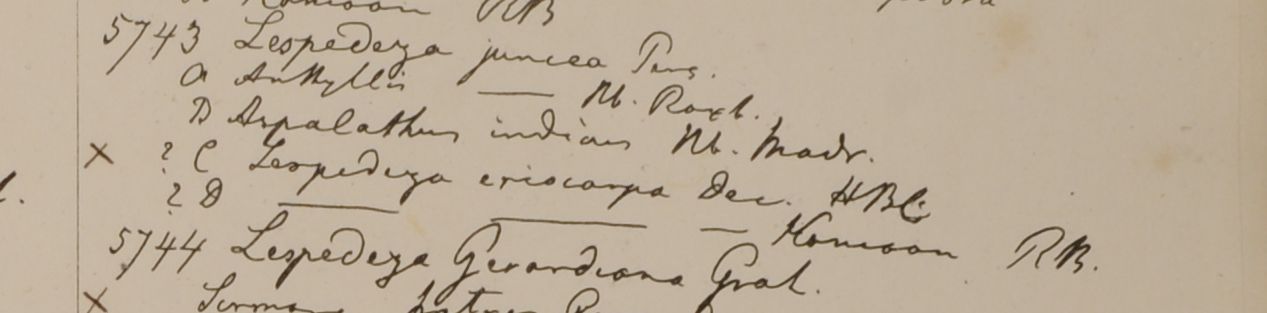 Kamaon RB
5743 Lespedeza juncea Pers.
A Anthyllis —— Hb. Roxb.
B Aspalathus indicus Hb. Madr.
× ? C Lespedeza eriocarpa Dec. HBC
? D —— —— — Kamaon RB.
5744 Lespedeza Gerardiana Grah.
×